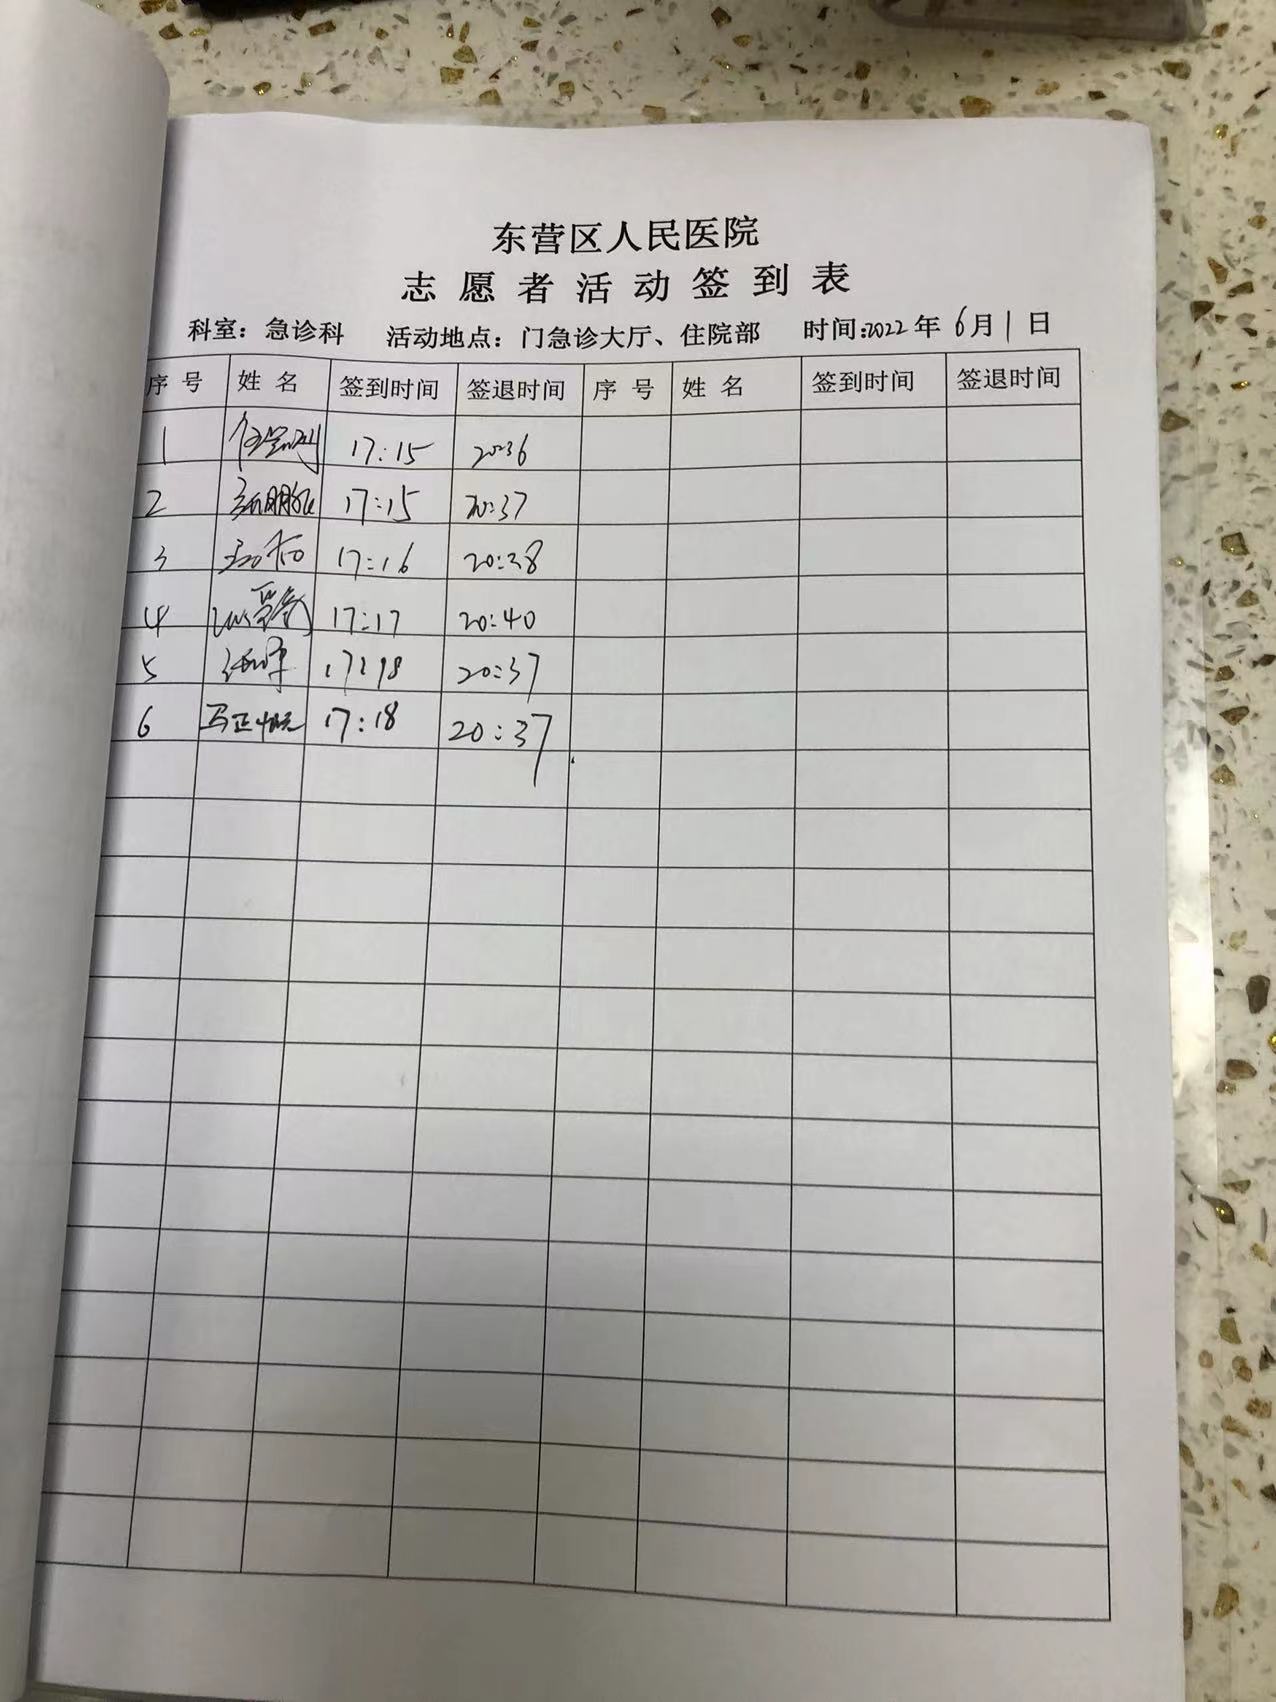 东营区人民医院
志愿者活动签到表
科室：急诊科 活动地点：门急诊大厅、住院部 时间:2022年6月1日
序号 姓名 签到时间 签退时间 序号 姓名 签到时间 签退时间
1 17:15 20:36
2 17:15 20:37
3 17:16 20:38
4 17:17 20:40
5 17:18 20:37
6 17:18 20:37